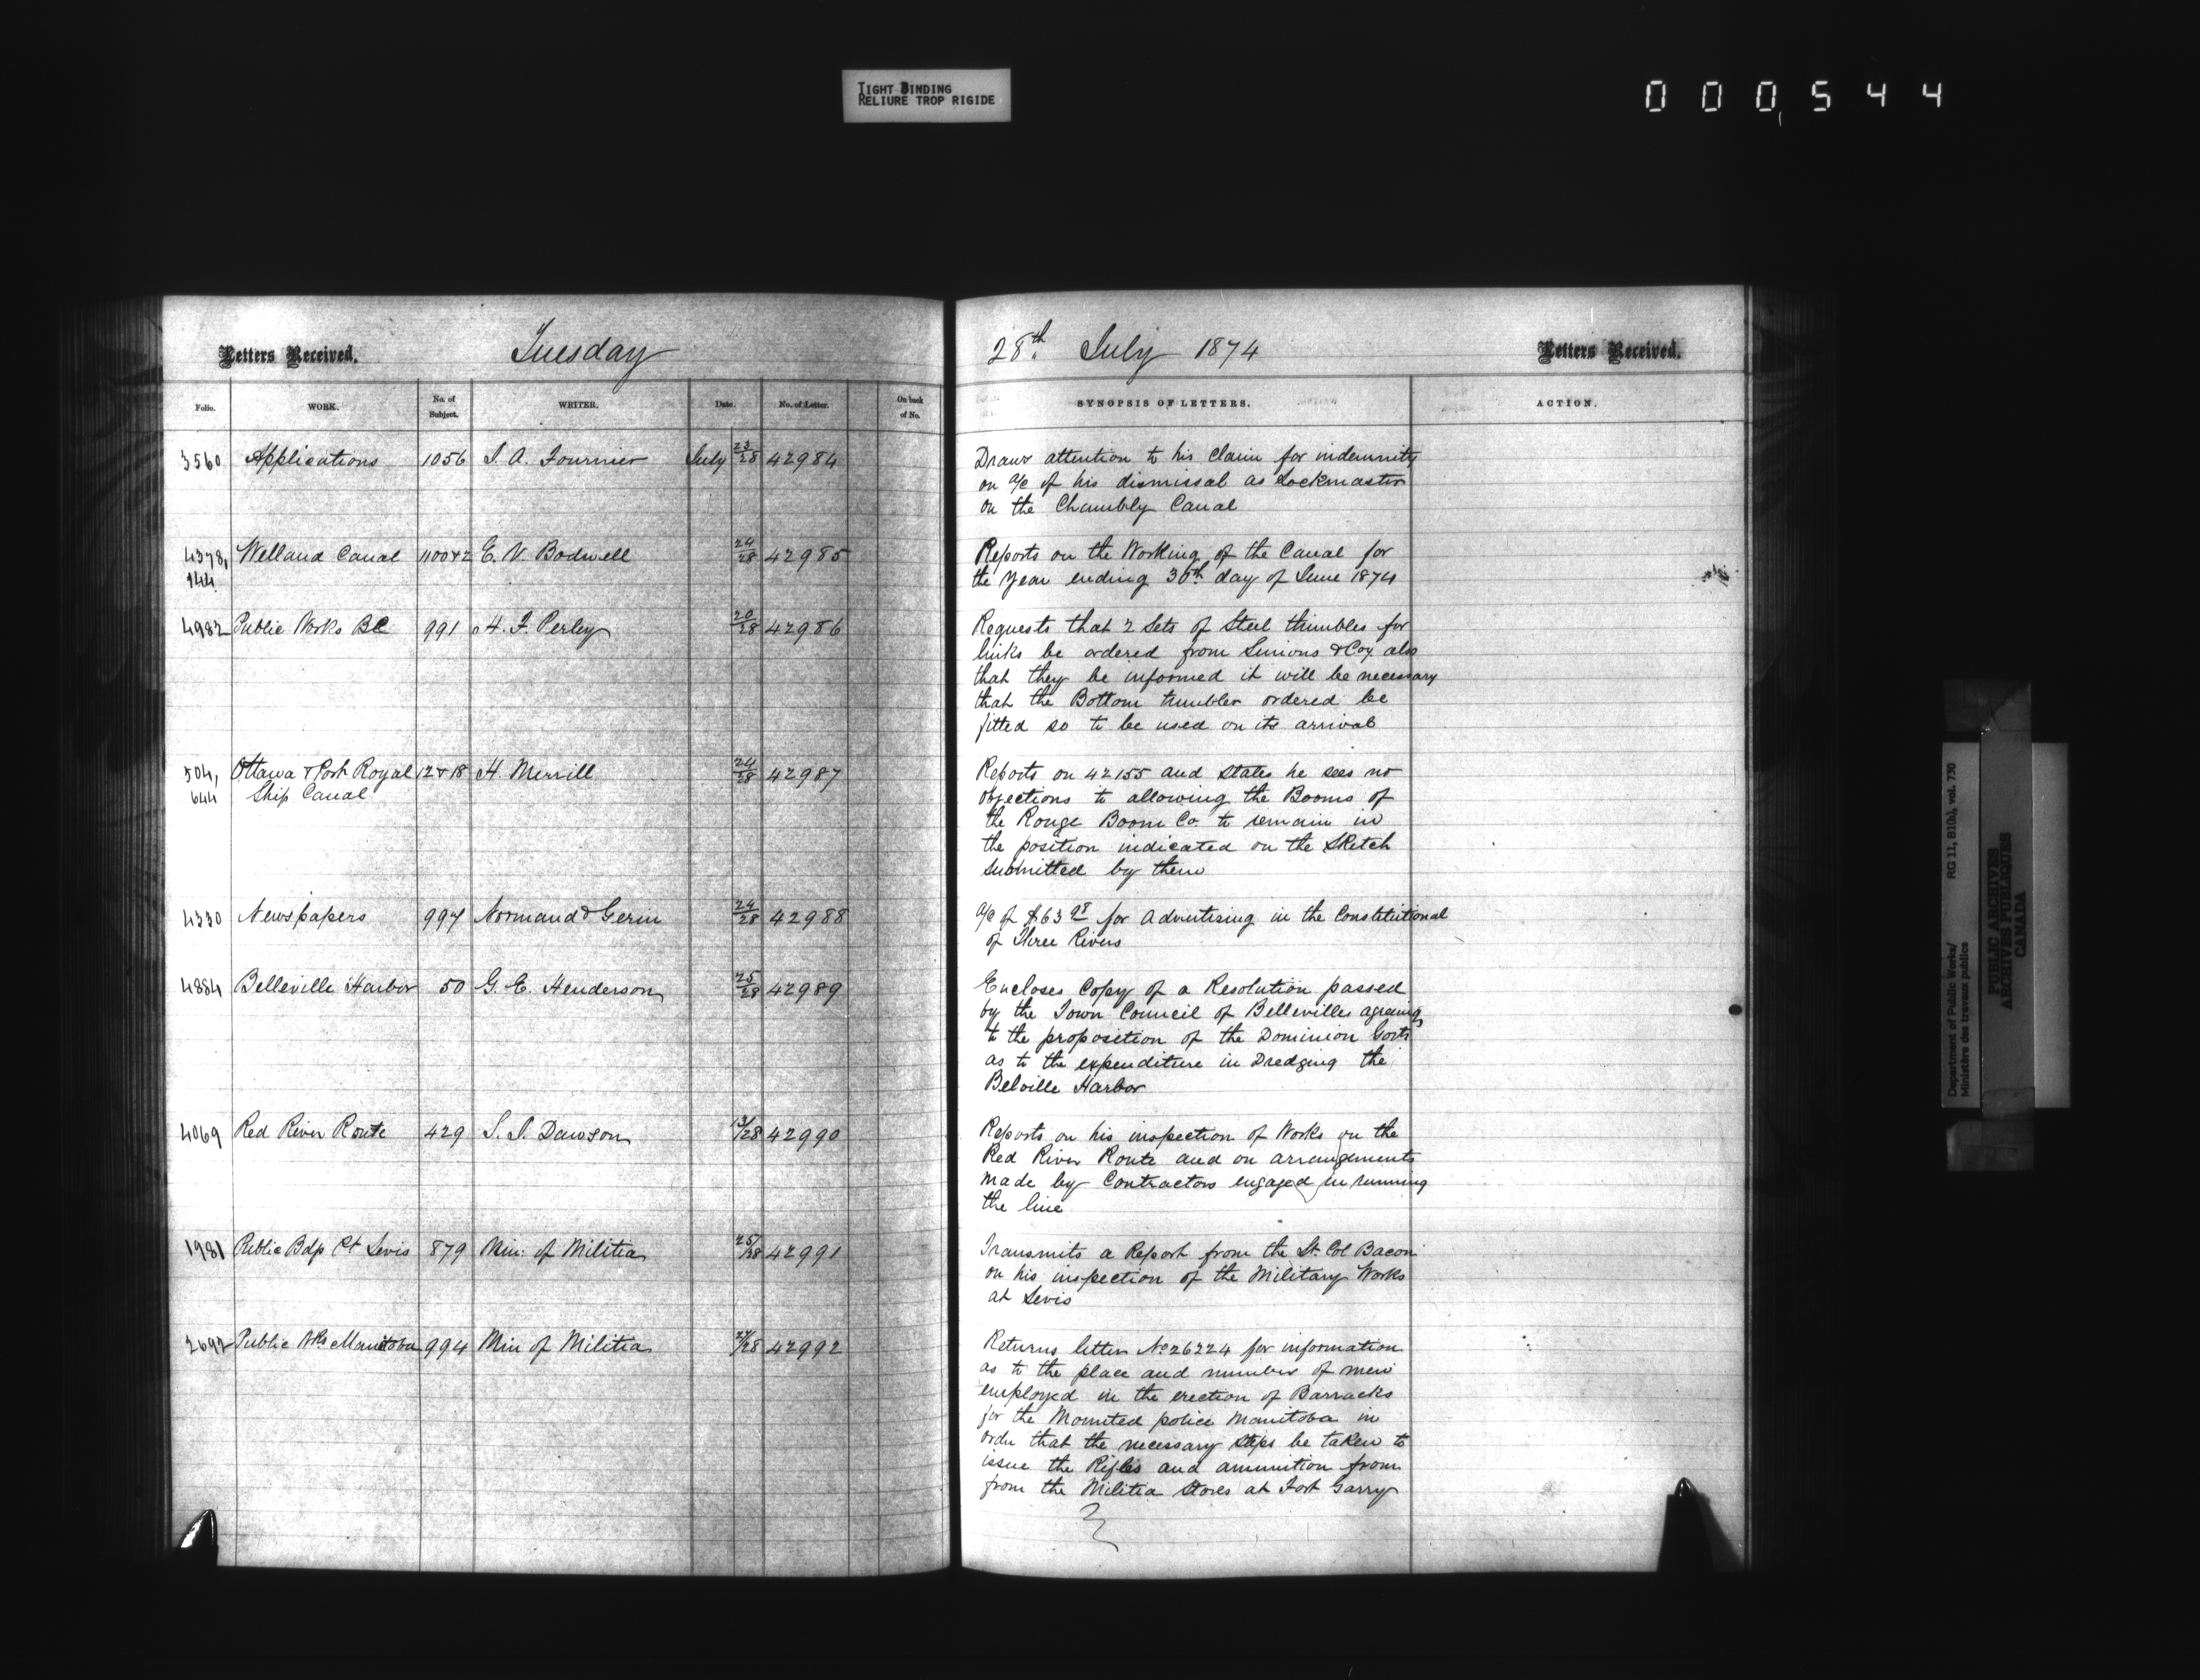 TIGHT BINDING
RELIURE TROP RIGIDE
000544
Letters Received.
Tuesday
Folio. WORK. No. of Subject. WRITER. Date. No. of Letter. On back of No.
3560 Applications 1056 J. A. Fournier July 23/28 42984
4378, Welland Canal 1100 & 2 E. V. Bodwell 24/28 42985
144
4982 Public Works BC 991 H. F. Perley 20/28 42986
504, Ottawa & Port Royal 12 & 18 H. Merrill 24/28 42987
644 Ship Canal
4330 Newspapers 997 Normand & Gerin 24/28 42988
4884 Belleville Harbor 50 G. E. Henderson 25/28 42989
4069 Red River Route 429 S. J. Dawson 13/28 42990
1981 Public Bdgs Pt Levis 879 Min: of Militia 25/28 42991
2692 Public Wks Manitoba 994 Min of Militia 27/28 42992
28th July 1874
Letters Received.
SYNOPSIS OF LETTERS. ACTION.
Draws attention to his claim for indemnity
on a/c of his dismissal as Lockmaster
on the Chambly Canal
Reports on the Working of the Canal for
the Year ending 30th day of June 1874
Requests that 2 Sets of Steel thimbles for
links be ordered from & Coy also
that they be informed it will be necessary
that the Bottom tumbler ordered be
fitted so to be used on its arrival
Reports on 42155 and states he sees no
objections to allowing the Booms of
the Rouge Boom Co. to remain in
the position indicated on the Sketch
submitted by them
a/c of $63 98 for advertizing in the Constitutional
of Three Rivers
Encloses Copy of a Resolution passed
by the Town Council of Belleville agreeing
to the proposition of the Dominion Govt
as to the expenditure in Dredging the
Belville Harbor
Reports on his inspection of Works on the
Red River Route and on arrangements
made by Contractors engaged in running
the line
Transmits a Report from the Lt. Col Bacon
on his inspection of the Military Works
at Levis
Returns letter No 26224 for information
as to the place and number of men
employed in the erection of Barracks
for the Mounted police Manitoba in
order that the necessary steps be taken to
issue the Rifles and amunition from
from the Militia Stores at Fort Garry
Department of Public Works/ RG 11, B1(b), vol. 730
Ministère des travaux publics
PUBLIC ARCHIVES
ARCHIVES PUBLIQUES
CANADA